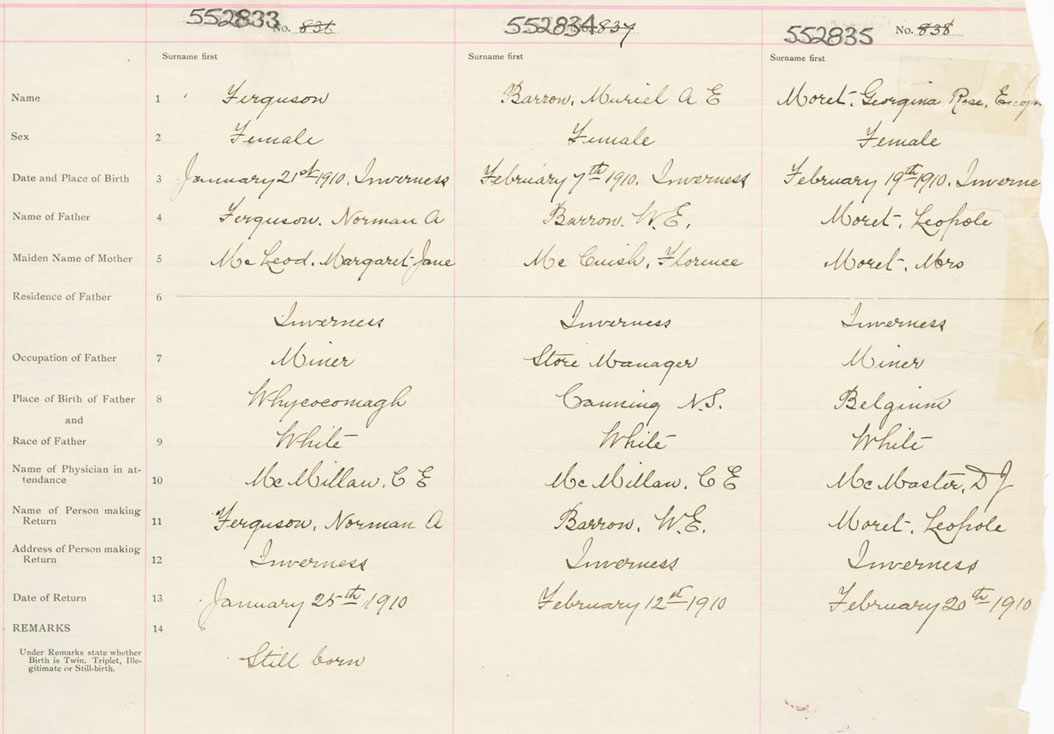 552833 No. 836 552834 No. 837 552835 No. 838
Surname first Surname first Surname first
Name 1 Ferguson Barron, Muriel A E Moret, Georgina Rose,
Sex 2 Female Female Female
Date and Place of Birth 3 January 21st 1910, Inverness February 7th 1910, Inverness February 19th 1910, Inverne
Name of Father 4 Ferguson, Norman A Barron, W.E. Moret, Leopole
Maiden Name of Mother 5 McLeod, Margaret Jane Mc Cuish, Florence Moret, Mrs
Residence of Father 6
Inverness Inverness Inverness
Occupation of Father 7 Miner Store Manager Miner
Place of Birth of Father 8 Whycocomagh Canning N.S. Belgium
and
Race of Father 9 White White White
Name of Physician in at-
tendance 10 McMillan, C E McMillan, C E McMaster, D J
Name of Person making
Return 11 Ferguson, Norman A Barron, W.E. Moret, Leopole
Address of Person making
Return 12 Inverness Inverness Inverness
Date of Return 13 January 25th 1910 February 12th 1910 February 20th 1910
REMARKS 14
Under Remarks state whether
Birth is Twin, Triplet, Ille-
gitimate or Still-birth.
Still born